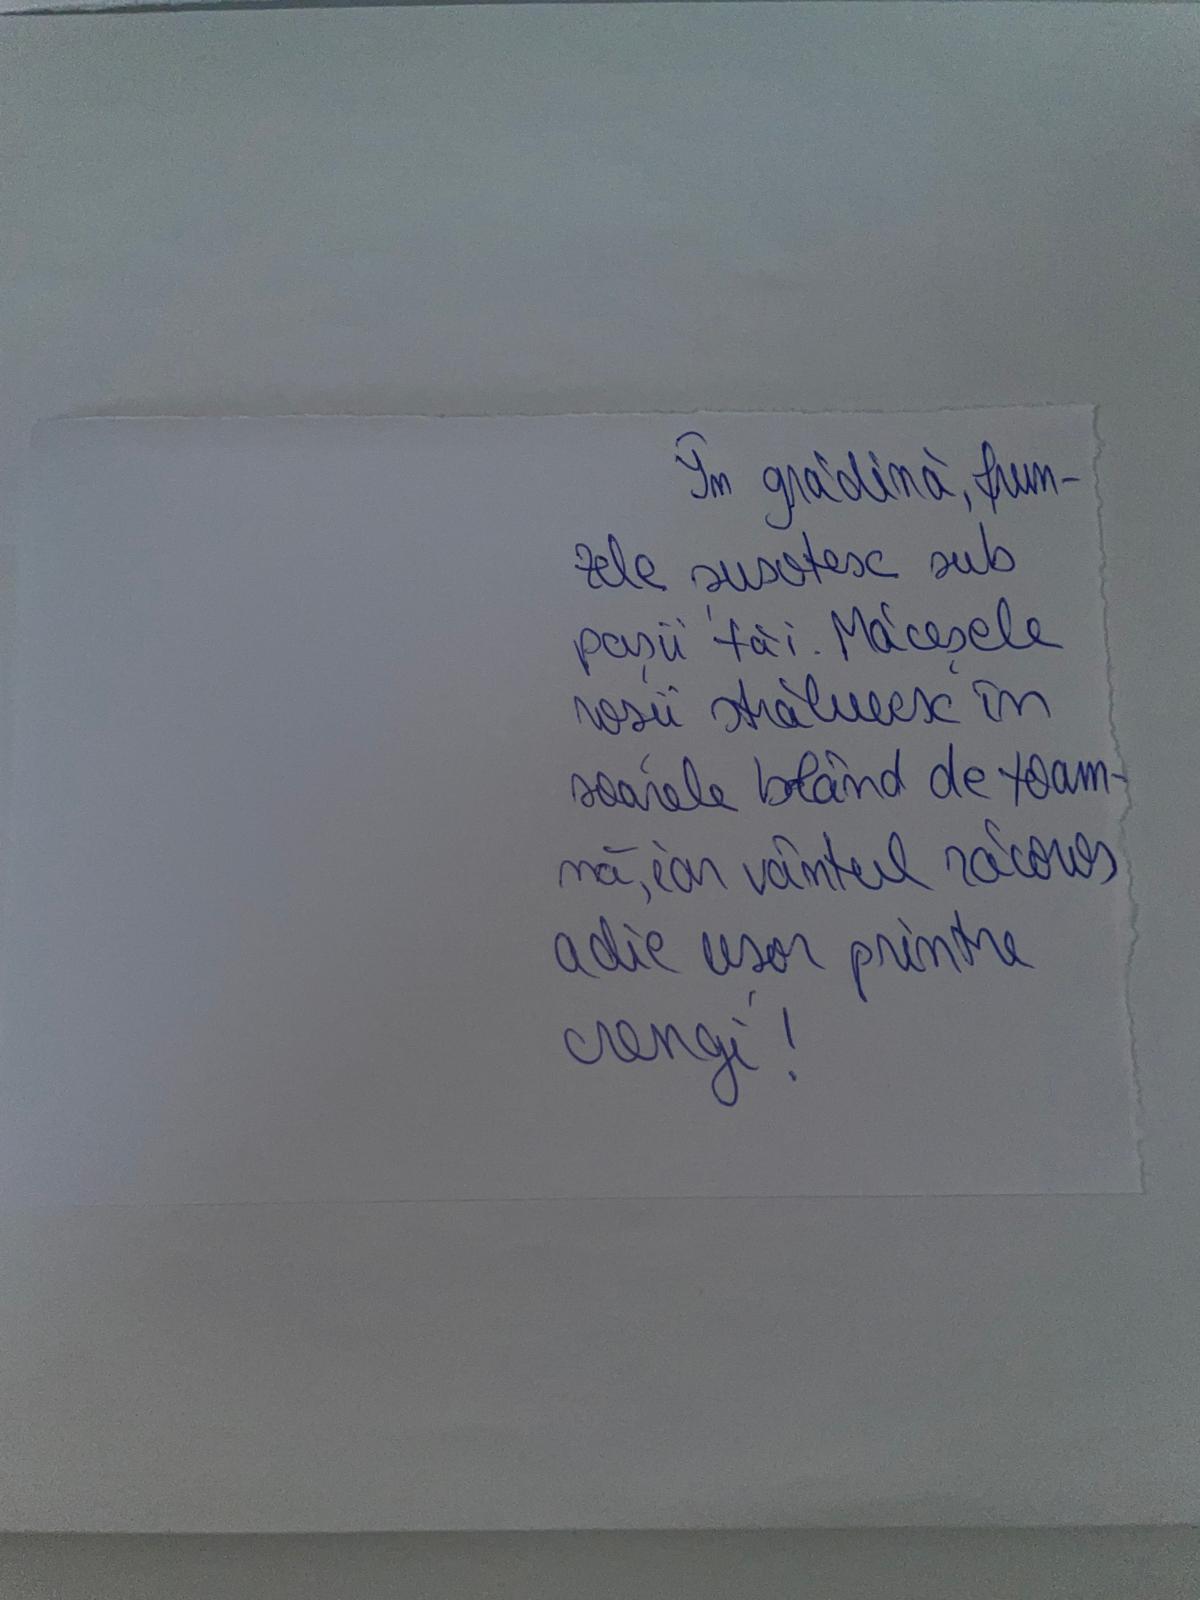 În grădină, frun-
zele șușotesc sub
pașii tăi. Măceșele
roșii strălucesc în
soarele blând de toam-
nă, iar vântul răcoros
adie ușor printre
crengi!